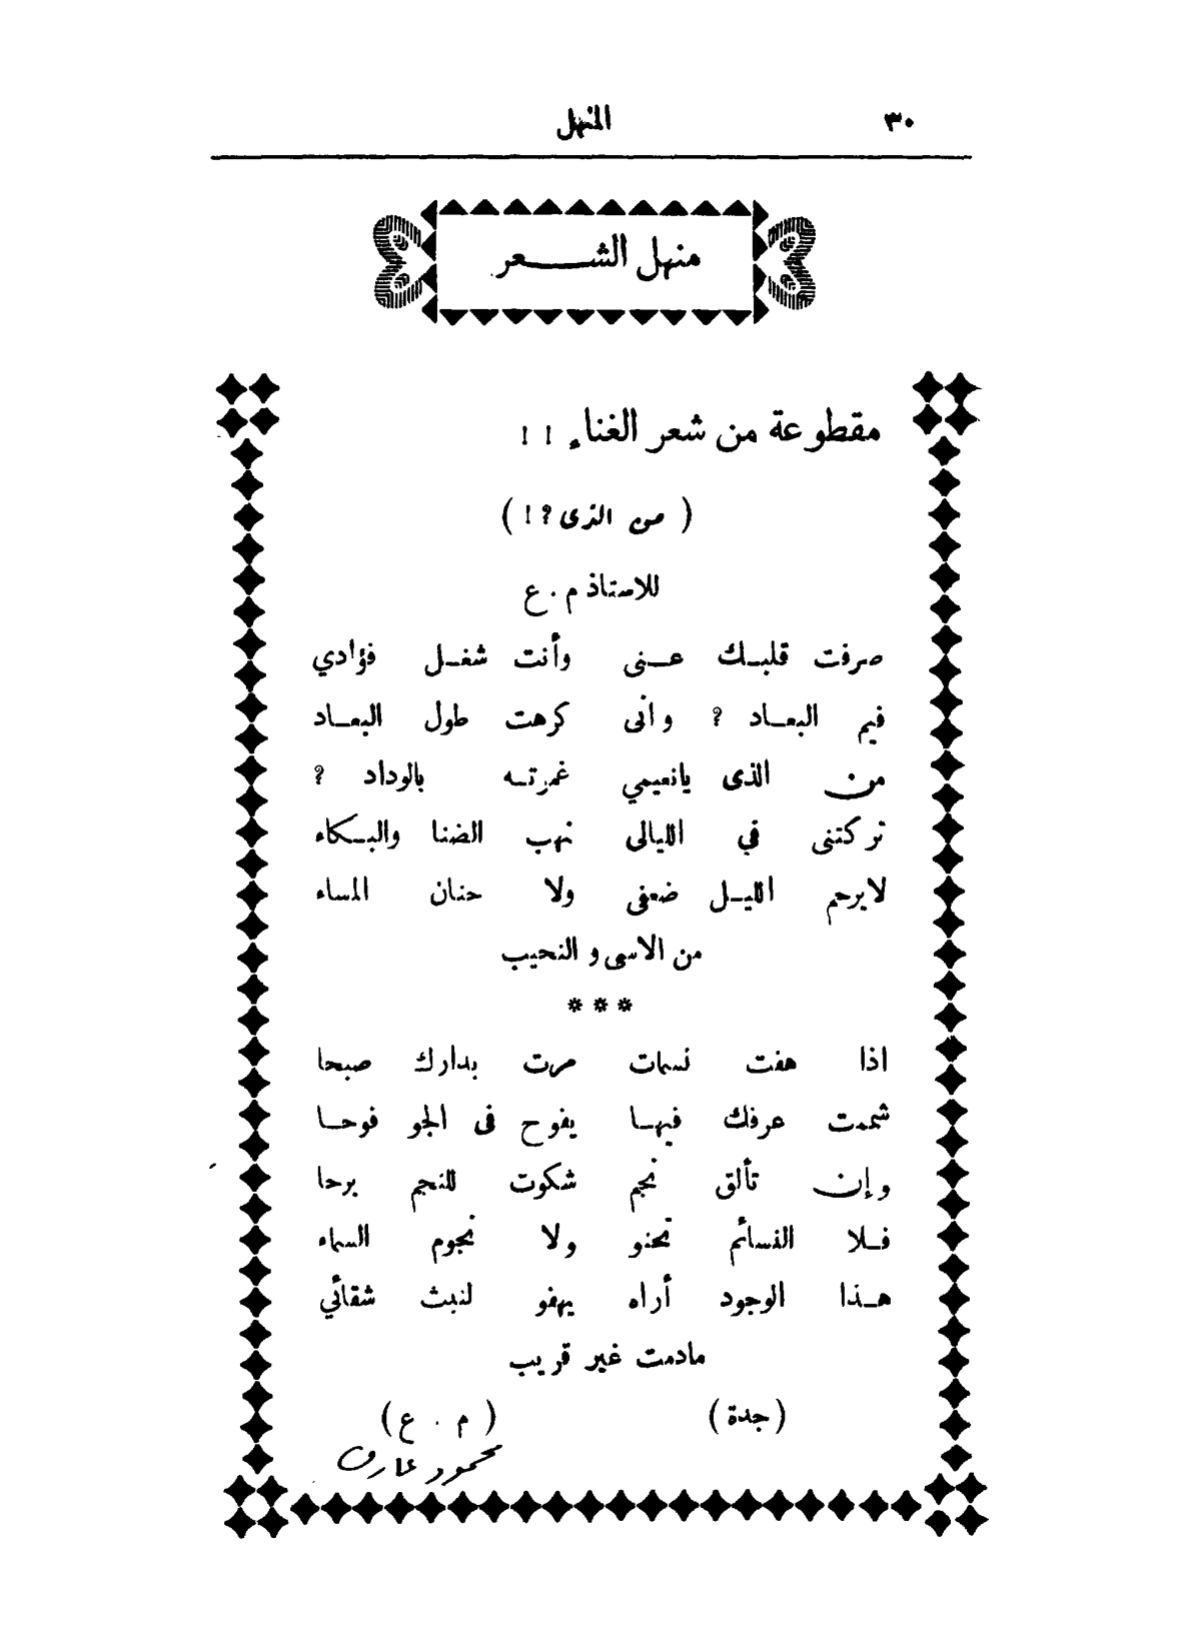 ٣٠
المنهل
منهل الشعر
مقطوعة من شعر الغناء ! !
( من الذى ؟ ! )
للاستاذ م . ع
صرفت قلبك عنى وأنت شغل فؤادي
فيم البعاد ؟ وانى كرهت طول البعاد
من الذى يانعيمي غمرته بالوداد ؟
تركتنى في الليالى نهب الضنا والبكاء
لايرحم الليل ضعفى ولا حنان المساء
من الاسى و النحيب
***
اذا هفت نسمات مرت بدارك صبحا
شممت عرفك فيها يفوح فى الجو فوحا
وإن تألق نجم شكوت للنجم برحا
فلا النسائم تحنو ولا نجوم السماء
هذا الوجود أراه يهفو لنبث شقائي
مادمت غير قريب
( جدة ) ( م . ع )
محمود عارف